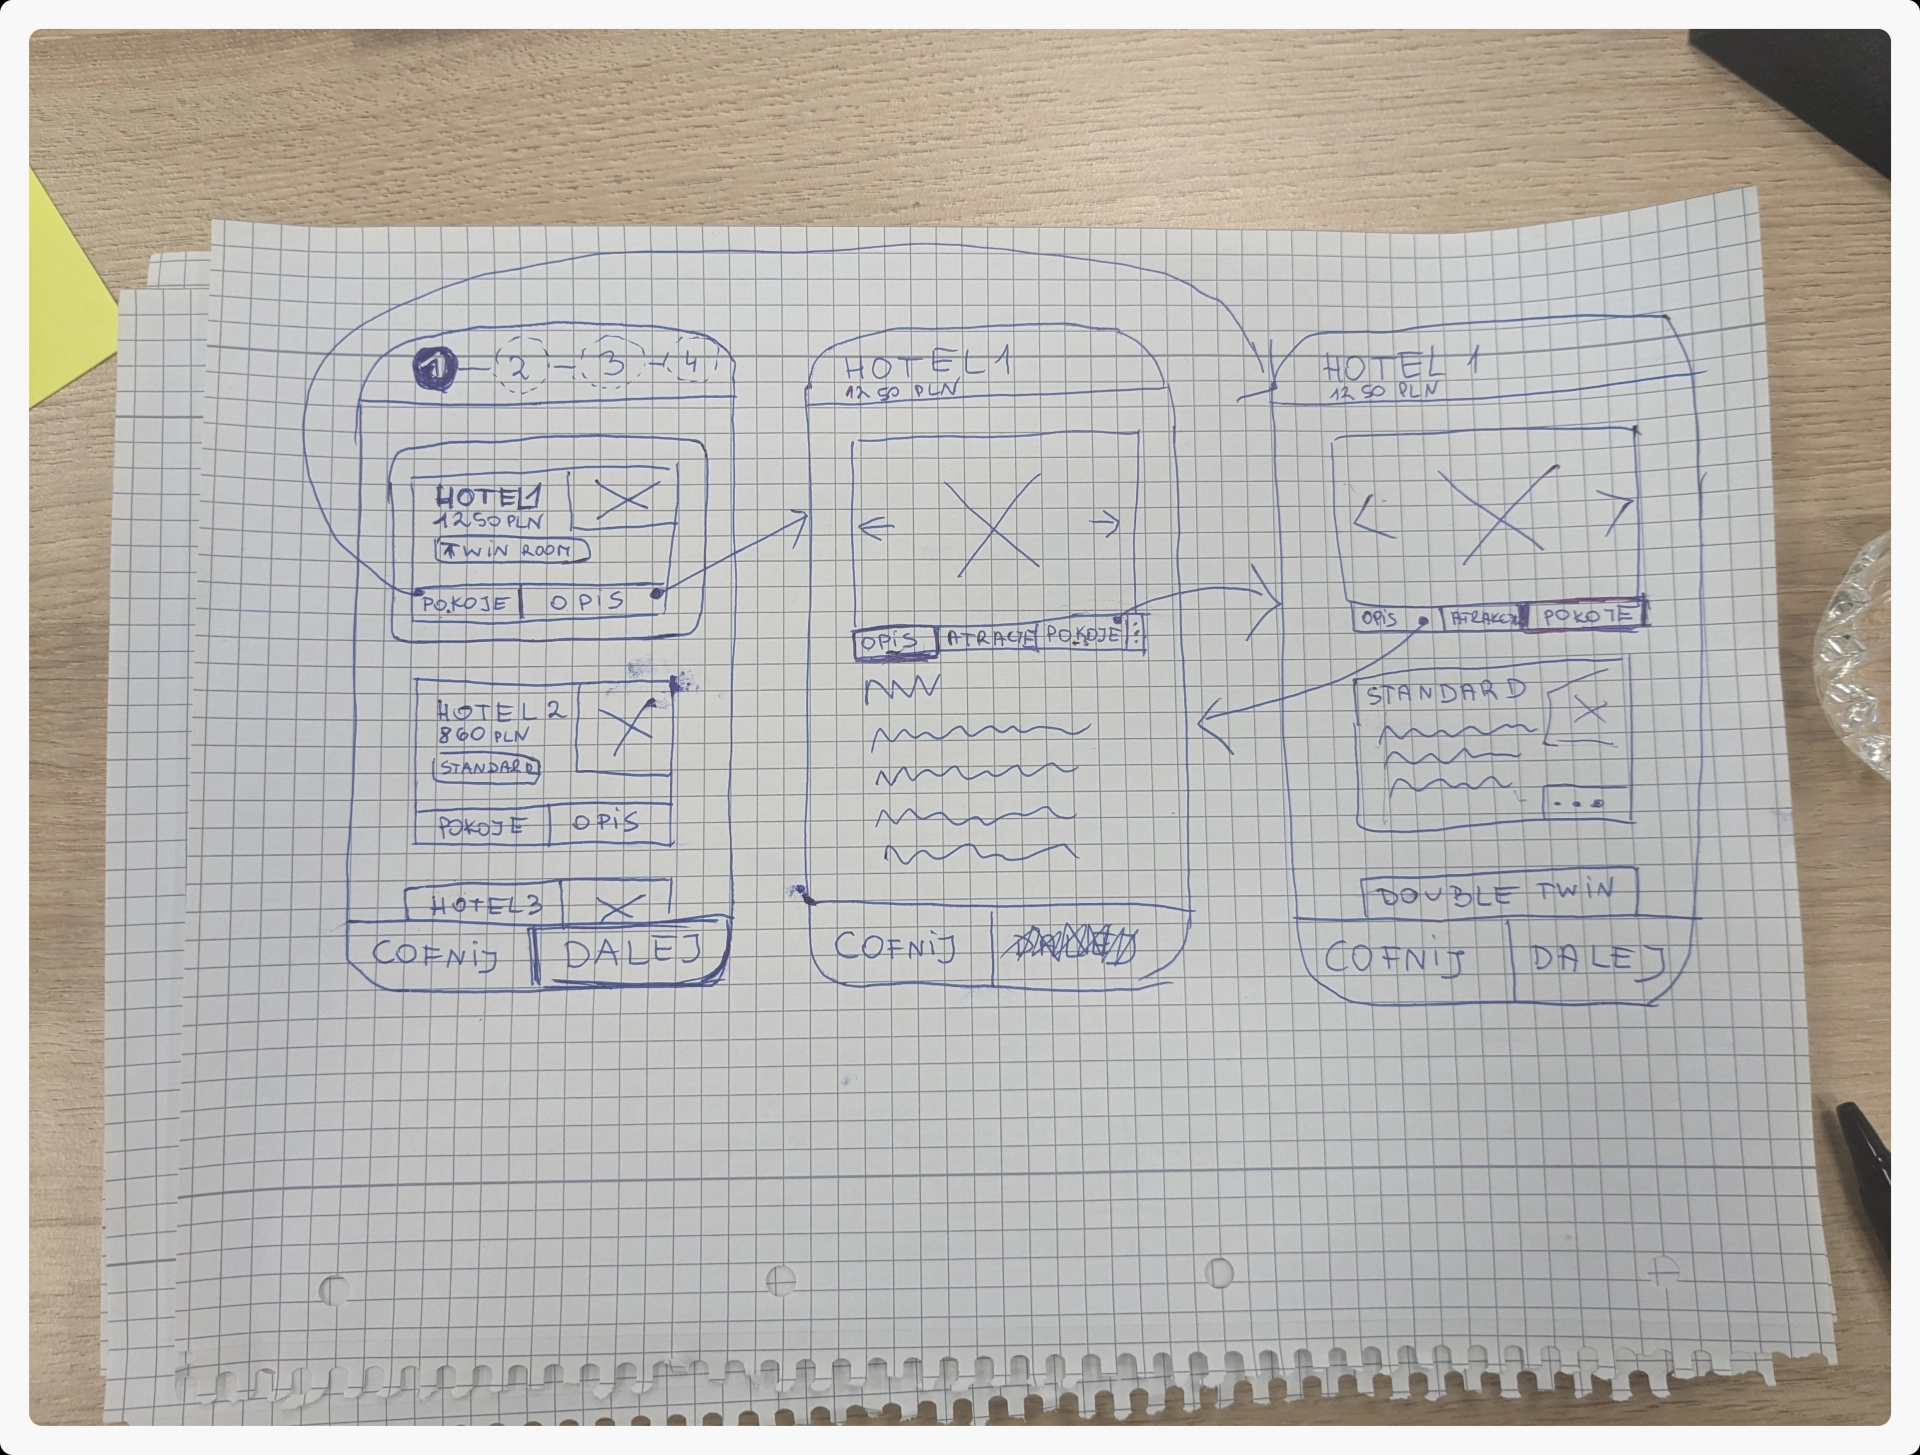 1 2 3 4
HOTEL1
1250 PLN
TWIN ROOM
POKOJE OPIS
HOTEL 2
860 PLN
STANDARD
POKOJE OPIS
HOTEL3
COFNIJ DALEJ
HOTEL 1
1250 PLN
OPIS ATRACJE POKOJE
COFNIJ
HOTEL 1
1250 PLN
OPIS POKOJE
STANDARD
DOUBLE TWIN
COFNIJ DALEJ